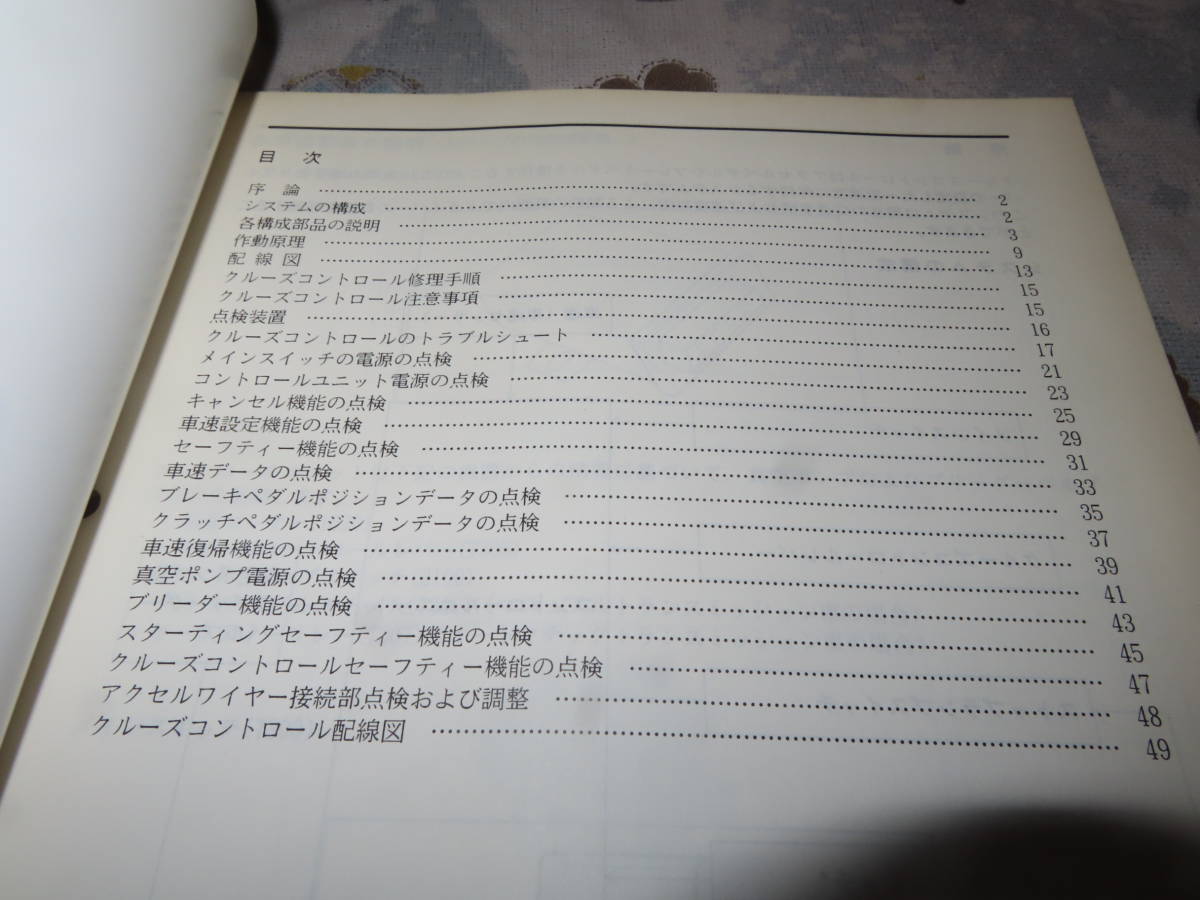 目 次
序 論 …… 2
システムの構成 …… 2
各構成部品の説明 …… 3
作動原理 …… 9
配 線 図 …… 13
クルーズコントロール修理手順 …… 15
クルーズコントロール注意事項 …… 15
点検装置 …… 16
クルーズコントロールのトラブルシュート …… 17
メインスイッチの電源の点検 …… 21
コントロールユニット電源の点検 …… 23
キャンセル機能の点検 …… 25
車速設定機能の点検 …… 29
セーフティー機能の点検 …… 31
車速データの点検 …… 33
ブレーキペダルポジションデータの点検 …… 35
クラッチペダルポジションデータの点検 …… 37
車速復帰機能の点検 …… 39
真空ポンプ電源の点検 …… 41
ブリーダー機能の点検 …… 43
スターティングセーフティー機能の点検 …… 45
クルーズコントロールセーフティー機能の点検 …… 47
アクセルワイヤー接続部点検および調整 …… 48
クルーズコントロール配線図 …… 49